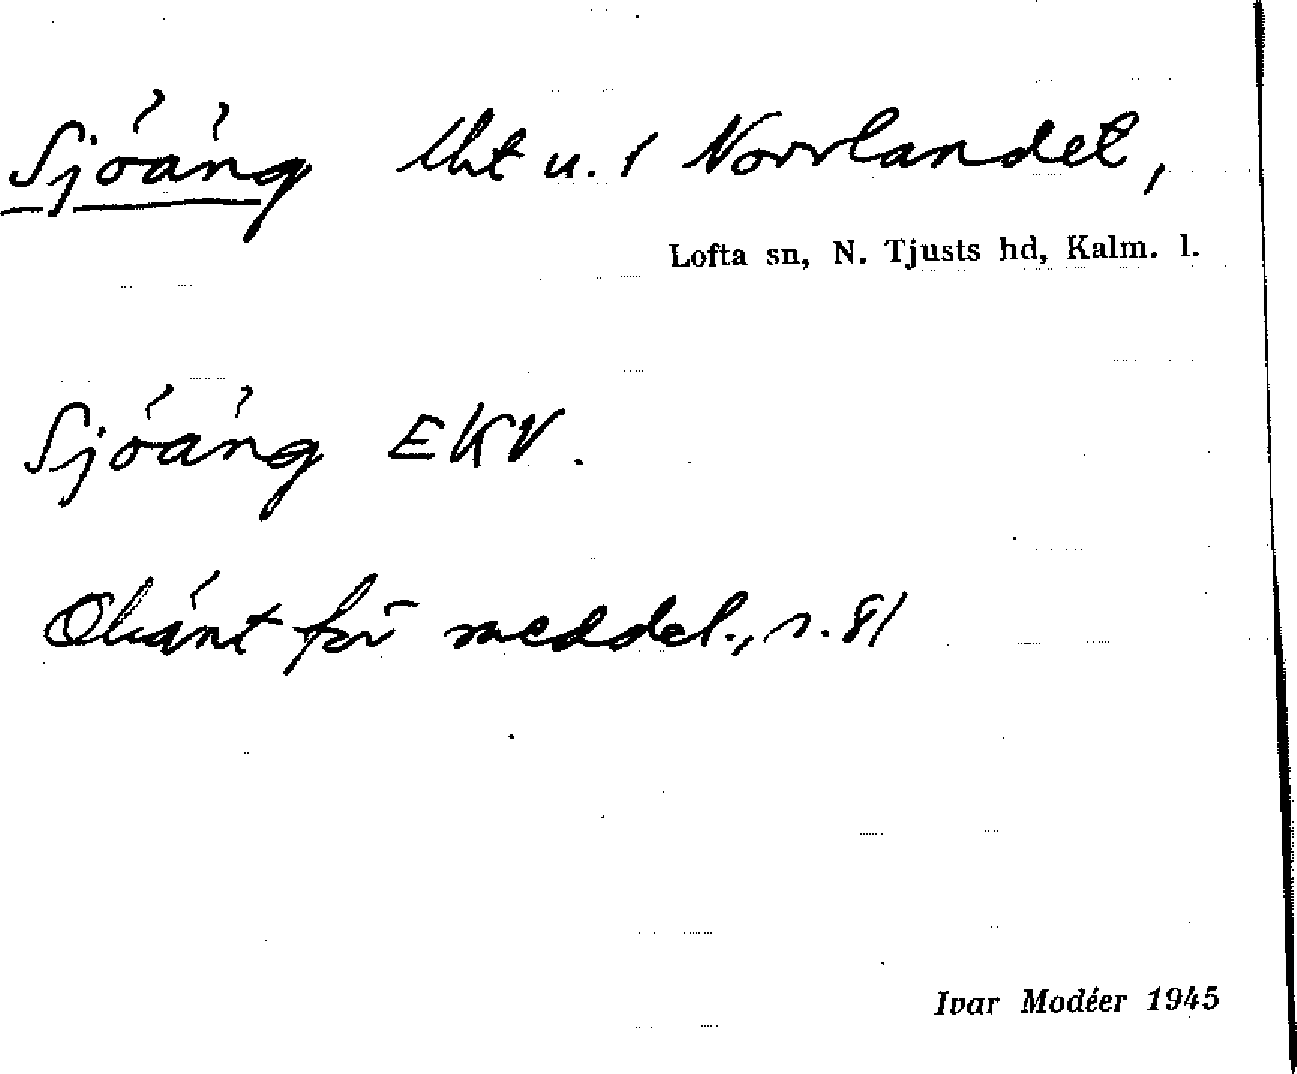 Sjöäng lht u. Norrlandet,
Lofta sn, N. Tjusts hd, Kalm. l.
Sjöäng EKV.
Okänt för meddel., s. 81
Ivar Modéer 1945